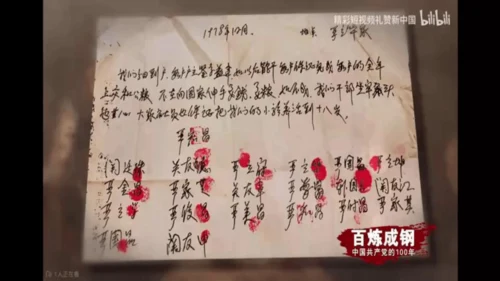 精彩短视频礼赞新中国 bilibili
1978年12月 地点 严立华家
我们分田到户 每户户主签字盖章 如以后能干 每户保证完成每户的全年
上交和公粮 不在向国家伸手要钱要粮 如不成 我们干部坐牢杀头
也甘心 大家社员也保证把我们的小孩养活到十八岁
严宏昌
关廷珠 关友德 严立富 严立华 严国昌 严立坤
严金昌 严家芝 关友章 严学昌 韩国云 关友江
严立学 严俊昌 严美昌 严付昌 严家其
严国品 关友申
百炼成钢
中国共产党的100年
1人正在看